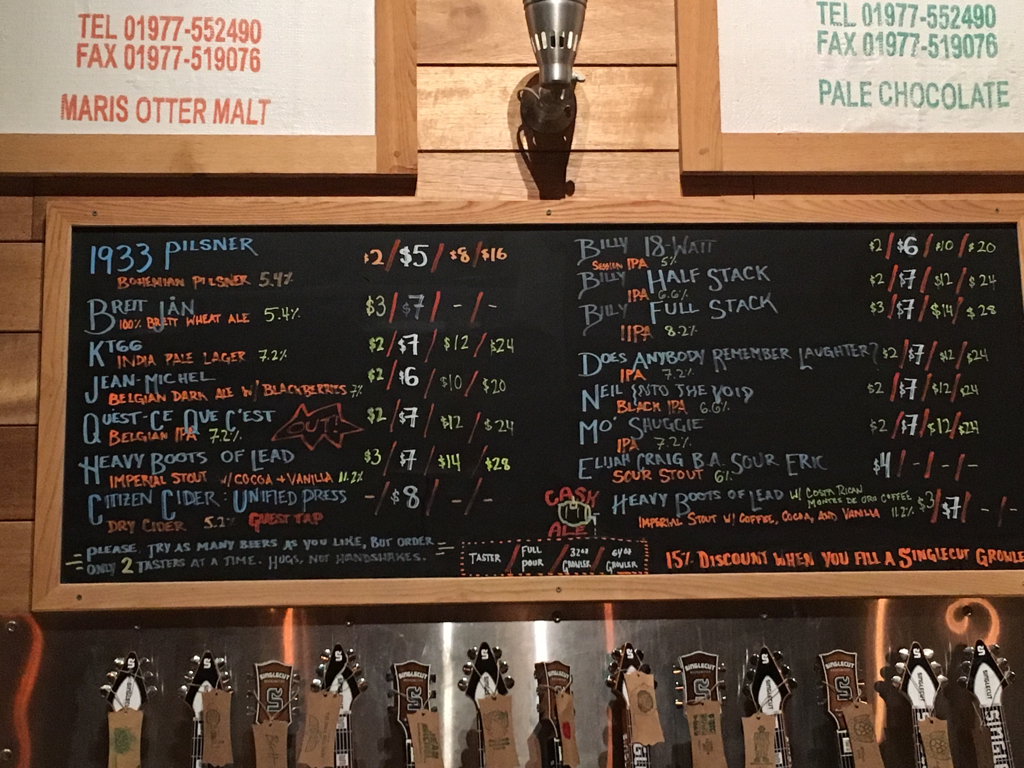 TEL 01977-552490
FAX 01977-519076
MARIS OTTER MALT
TEL 01977-552490
FAX 01977-519076
PALE CHOCOLATE
1933 PILSNER $2/$5/$8/$16
BOHEMIAN PILSNER 5.4%
BRETT JÄN $3/$7/-/-
100% BRETT WHEAT ALE 5.4%
KT66 $2/$7/$12/$24
INDIA PALE LAGER 7.2%
JEAN-MICHEL $2/$6/$10/$20
BELGIAN DARK ALE W/ BLACKBERRIES 7%
QUEST-CE QUE C'EST OUT! $2/$7/$12/$24
BELGIAN IPA 7.2%
HEAVY BOOTS OF LEAD $3/$7/$14/$28
IMPERIAL STOUT W/ COCOA + VANILLA 11.2%
CITIZEN CIDER: UNIFIED PRESS -/$8/-/-
DRY CIDER 5.2% GUEST TAP
PLEASE, TRY AS MANY BEERS AS YOU LIKE, BUT ORDER
ONLY 2 TASTERS AT A TIME. HUGS, NOT HANDSHAKES.
BILLY 18-WATT $2/$6/$10/$20
SESSION IPA 5%
BILLY HALF STACK $2/$7/$12/$24
IPA 6.6%
BILLY FULL STACK $3/$7/$14/$28
IIPA 8.2%
DOES ANYBODY REMEMBER LAUGHTER? $2/$7/$12/$24
IPA 7.2%
NEIL INTO THE VOID $2/$7/$12/$24
BLACK IPA 6.6%
MO' SHUGGIE $2/$7/$12/$24
IPA 7.2%
ELIJAH CRAIG B.A. SOUR ERIC $4/-/-/-
SOUR STOUT 6%
CASK
ALE
HEAVY BOOTS OF LEAD W/ COSTA RICAN
MONTES DE ORO COFFEE $3/$7/-/-
IMPERIAL STOUT W/ COFFEE, COCOA, AND VANILLA 11.2%
TASTER / FULL POUR / 32oz GROWLER / 64oz GROWLER
15% DISCOUNT WHEN YOU FILL A SINGLECUT GROWLE
SINGLECUT
SINGLECUT
SINGLECUT
SINGLECUT